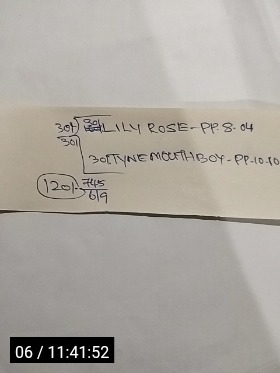 30/- 30/- LILY ROSE-PP.8.04
30/-
30/-TYNEMOUTHBOY-PP.10.10
120/- 745
619
06 / 11:41:52